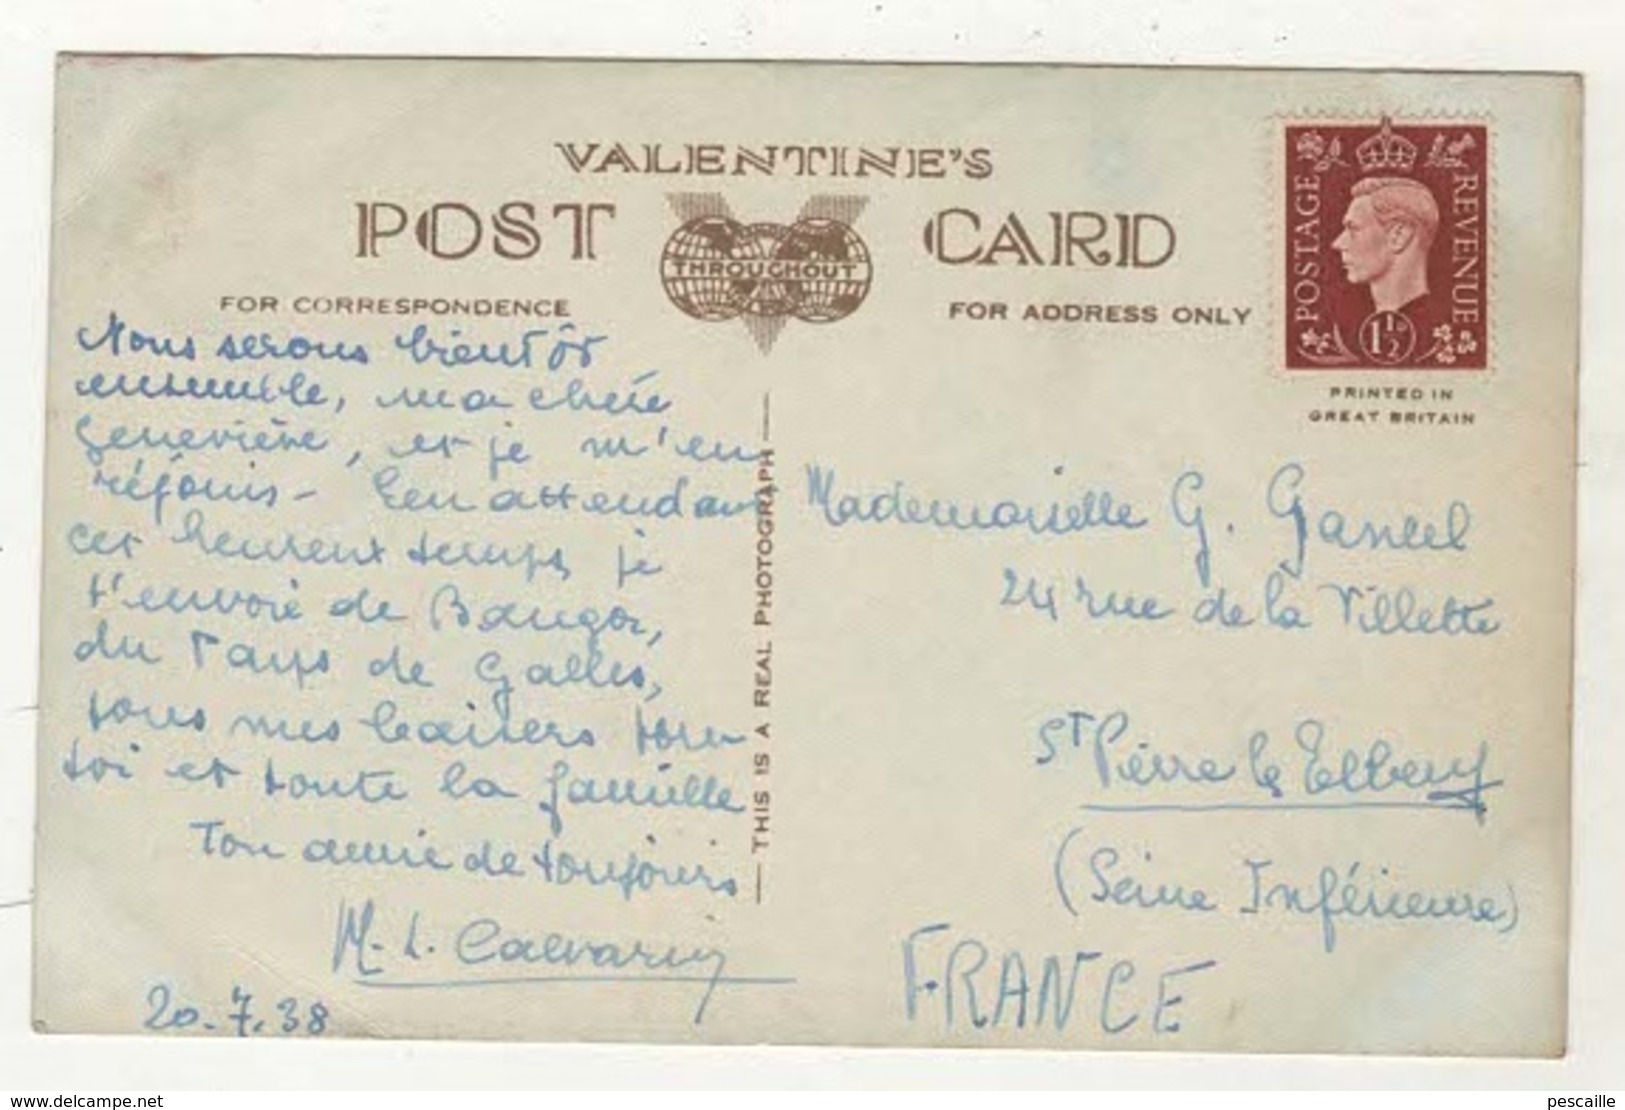 VALENTINE'S
POST CARD
THROUGHOUT
FOR CORRESPONDENCE
FOR ADDRESS ONLY
POSTAGE REVENUE
1½D
PRINTED IN
GREAT BRITAIN
THIS IS A REAL PHOTOGRAPH
Nous serons bientôt
ensemble, ma chère
Geneviève, et je m'en
réjouis - En attendant
cet heureux temps, je
t'envoie de Bangor,
du Pays de Galles,
tous mes baisers pour
toi et toute la famille
Ton amie de toujours
M. L. Calvarin
20.7.38
Mademoiselle G. Gancel
24 rue de la Villette
St Pierre les Elbeuf
(Seine Inférieure)
FRANCE
www.delcampe.net
pescaille